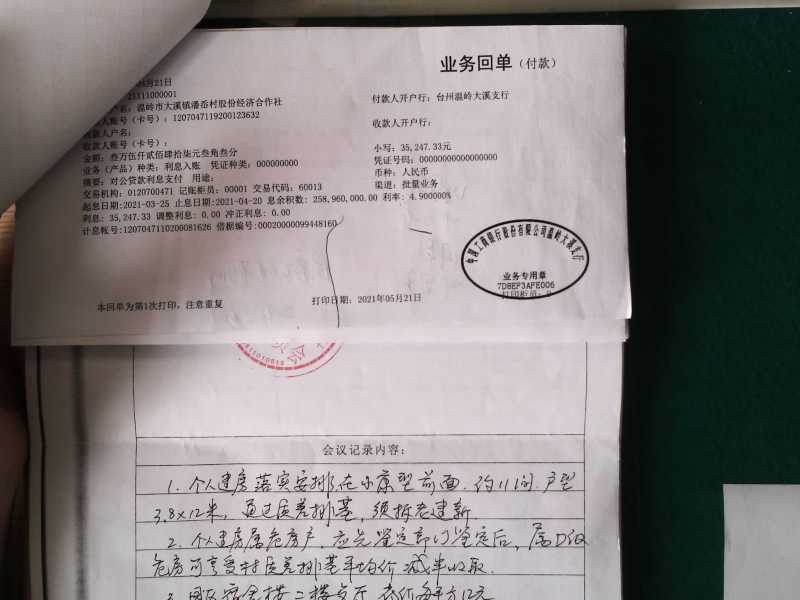 业务回单（付款）
月21日
21111000001
名：温岭市大溪镇潘岙村股份经济合作社
付款人开户行：台州温岭大溪支行
人账号（卡号）：1207047119200123632
收款人户名：
收款人开户行：
收款人账号（卡号）：
金额：叁万伍仟贰佰肆拾柒元叁角叁分
小写：35,247.33元
业务（产品）种类：利息入账 凭证种类：000000000
凭证号码：00000000000000000
摘要：对公贷款利息支付 用途：
币种：人民币
交易机构：0120700471 记账柜员：00001 交易代码：60013
渠道：批量业务
起息日期:2021-03-25 止息日期:2021-04-20 息余积数：258,960,000.00 利率：4.900000%
利息：35,247.33 调整利息：0.00 冲正利息：0.00
计息帐号:1207047110200081626 借据编号:00020000099448160
中国工商银行股份有限公司温岭大溪支行
业务专用章
7DBEF3AFE006
打印柜员：9
本回单为第1次打印，注意重复
打印日期：2021年05月21日
会议记录内容：
1. 个人建房落实安排在小康型前面，约11间，户型
3.8×12米，通过质差排基，须拆老建新
2. 个人建房属危房户，应先鉴定部门鉴定后，属D级
危房可享受村质差排基平均价减半收取